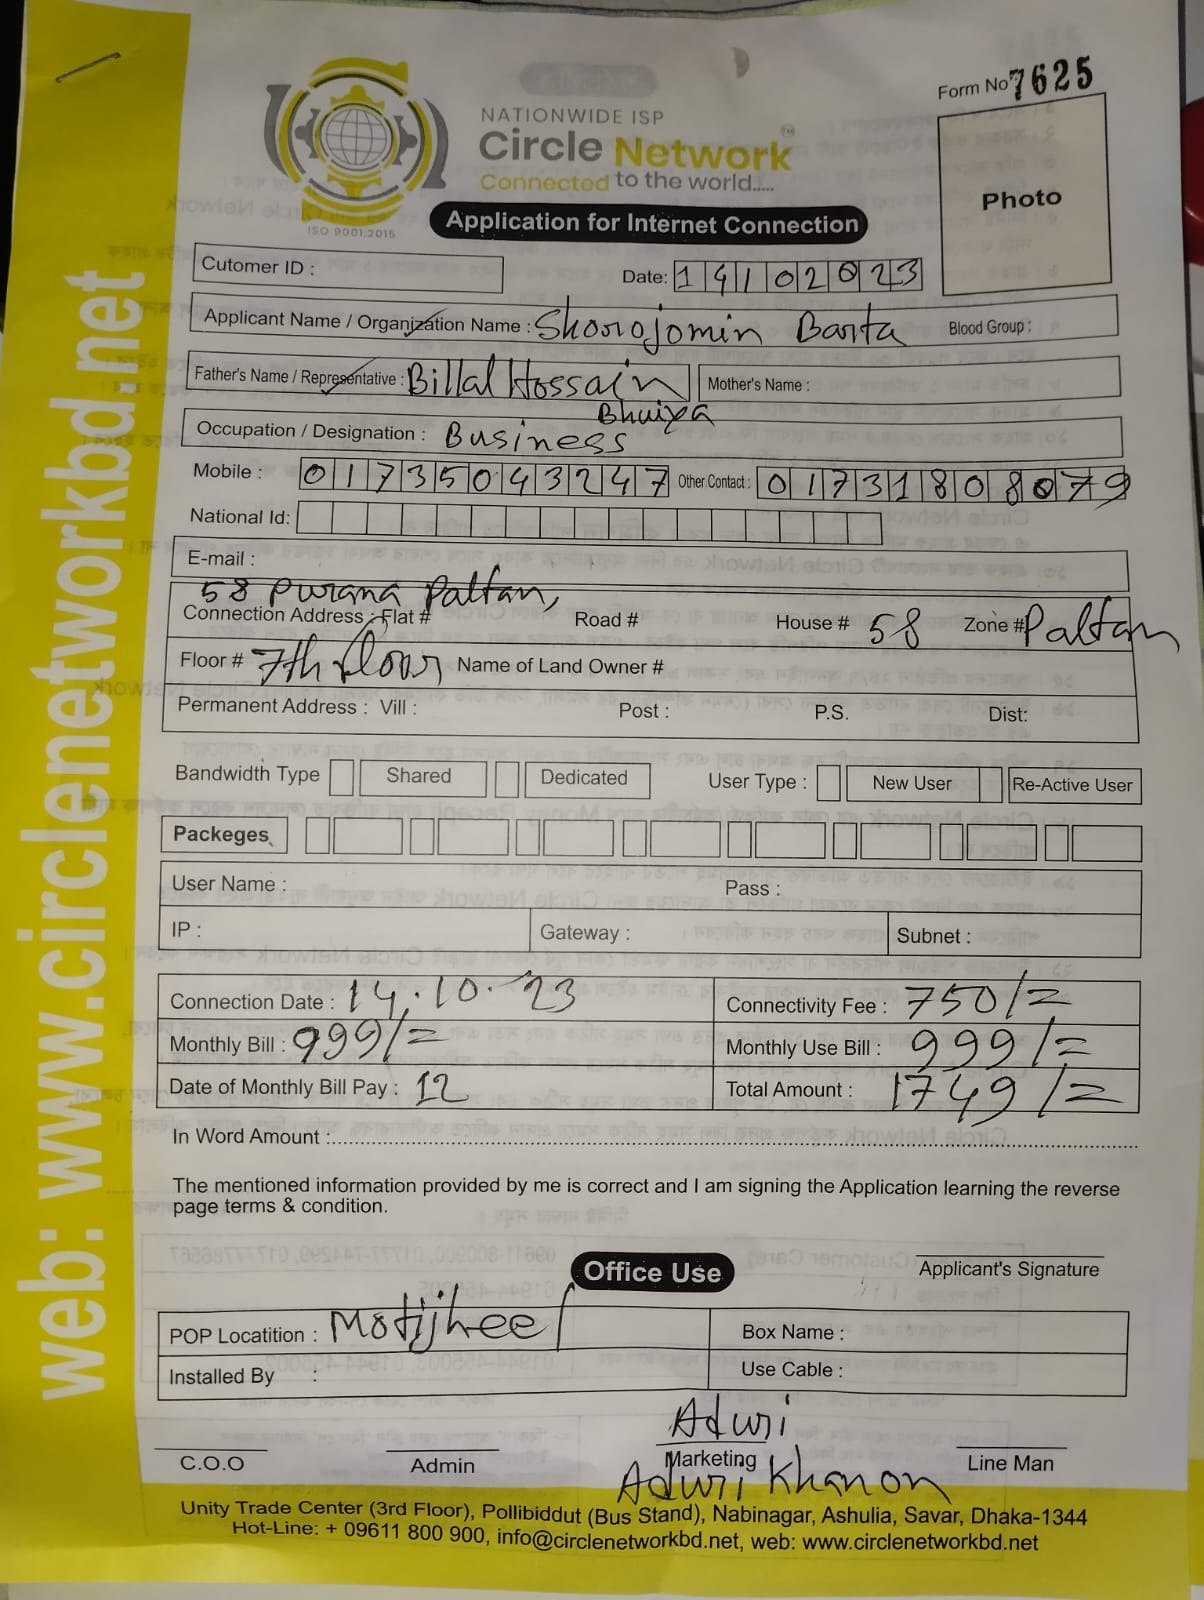 Form No 7625
NATIONWIDE ISP
Circle Network TM
Connected to the world.....
ISO 9001:2015
Application for Internet Connection
Photo
Cutomer ID :
Date: 14102023
Applicant Name / Organization Name : Shorojomin Barta Blood Group :
Father's Name / Representative : Billal Hossain Mother's Name :
Bhuiya
Occupation / Designation : Business
Mobile : 01735043247 Other Contact : 01731808079
National Id:
E-mail :
58 Purana Paltan,
Connection Address : Flat # Road # House # 58 Zone # Paltan
Floor # 7th floor Name of Land Owner #
Permanent Address : Vill : Post : P.S. Dist:
Bandwidth Type Shared Dedicated User Type : New User Re-Active User
Packeges
User Name : Pass :
IP : Gateway : Subnet :
Connection Date : 14.10.23 Connectivity Fee : 750/=
Monthly Bill : 999/= Monthly Use Bill : 999/=
Date of Monthly Bill Pay : 12 Total Amount : 1749/=
In Word Amount :
The mentioned information provided by me is correct and I am signing the Application learning the reverse
page terms & condition.
Applicant's Signature
Office Use
POP Locatition : Motijheel Box Name :
Installed By : Use Cable :
Aduri
C.O.O Admin Marketing Line Man
Aduri Khanon
Unity Trade Center (3rd Floor), Pollibiddut (Bus Stand), Nabinagar, Ashulia, Savar, Dhaka-1344
Hot-Line: + 09611 800 900, info@circlenetworkbd.net, web: www.circlenetworkbd.net
web: www.circlenetworkbd.net